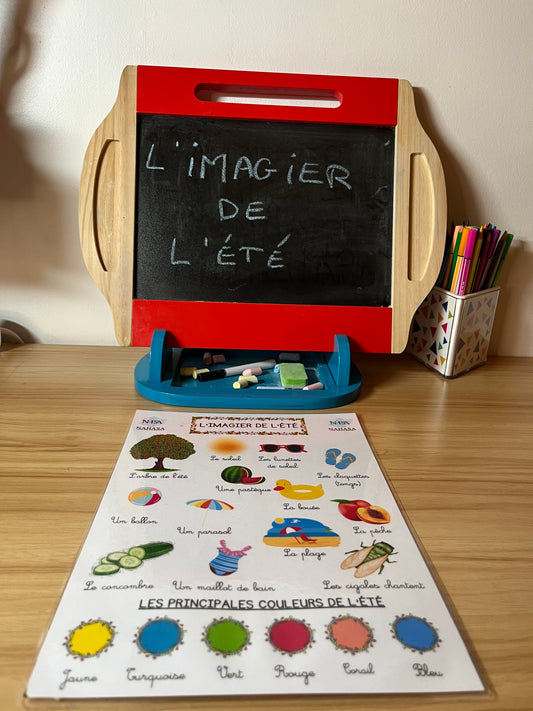 L'IMAGIER
DE
L'ÉTÉ
L'IMAGIER DE L'ÉTÉ
NAHASA
NAHASA
L'arbre de l'été
Le soleil
Les lunettes
de soleil
Les claquettes
(tongs)
Une pastèque
La bouée
Un ballon
Un parasol
La plage
La pêche
Le concombre
Un maillot de bain
Les cigales chantent
LES PRINCIPALES COULEURS DE L'ÉTÉ
Jaune
Turquoise
Vert
Rouge
Corail
Bleu